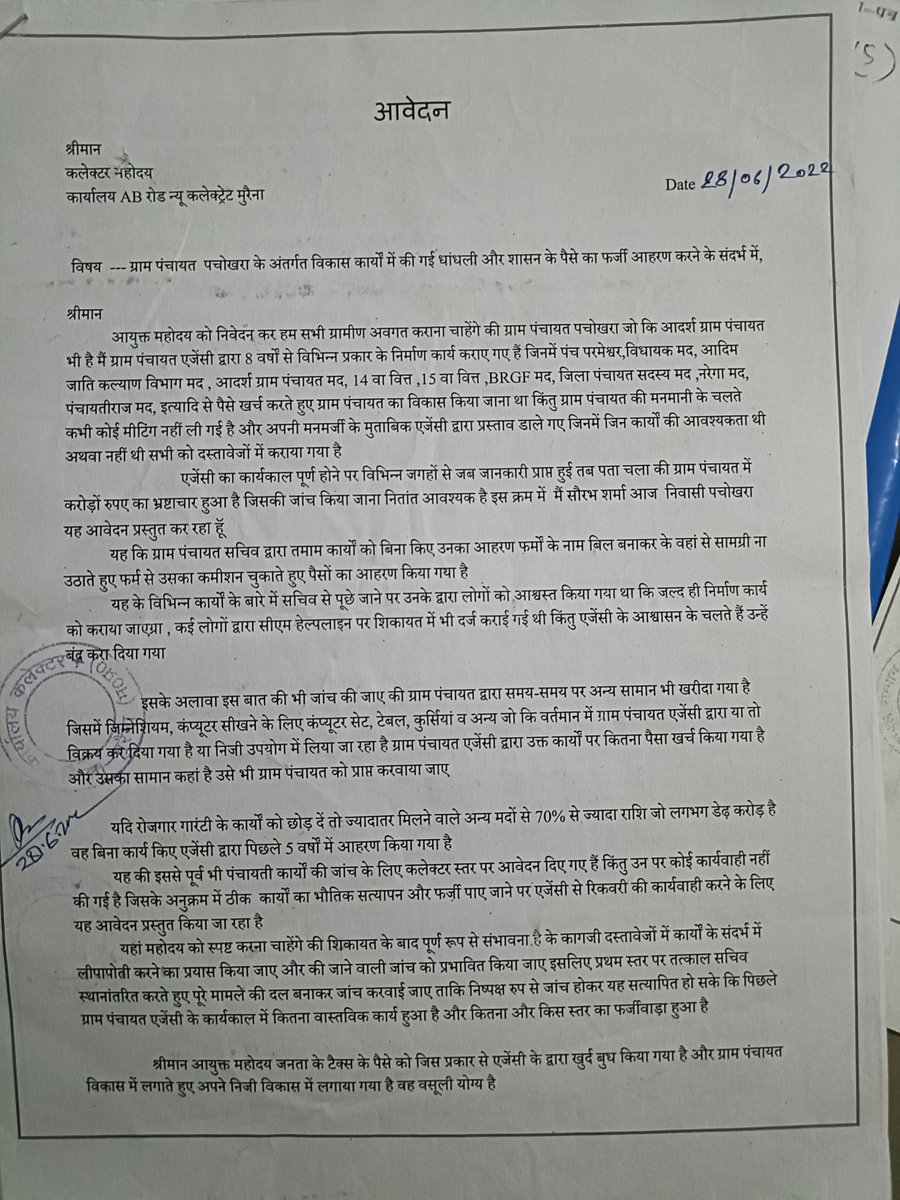 आवेदन
श्रीमान
कलेक्टर महोदय
कार्यालय AB रोड न्यू कलेक्ट्रेट मुरैना
Date 28/06/2022
विषय --- ग्राम पंचायत पचोखरा के अंतर्गत विकास कार्यों में की गई धांधली और शासन के पैसे का फर्जी आहरण करने के संदर्भ में,
श्रीमान
आयुक्त महोदय को निवेदन कर हम सभी ग्रामीण अवगत कराना चाहेंगे की ग्राम पंचायत पचोखरा जो कि आदर्श ग्राम पंचायत
भी है मैं ग्राम पंचायत एजेंसी द्वारा 8 वर्षों से विभिन्न प्रकार के निर्माण कार्य कराए गए हैं जिनमें पंच परमेश्वर,विधायक मद, आदिम
जाति कल्याण विभाग मद , आदर्श ग्राम पंचायत मद, 14 वा वित्त ,15 वा वित्त ,BRGF मद, जिला पंचायत सदस्य मद ,नरेगा मद,
पंचायतीराज मद, इत्यादि से पैसे खर्च करते हुए ग्राम पंचायत का विकास किया जाना था किंतु ग्राम पंचायत की मनमानी के चलते
कभी कोई मीटिंग नहीं ली गई है और अपनी मनमर्जी के मुताबिक एजेंसी द्वारा प्रस्ताव डाले गए जिनमें जिन कार्यों की आवश्यकता थी
अथवा नहीं थी सभी को दस्तावेजों में कराया गया है
एजेंसी का कार्यकाल पूर्ण होने पर विभिन्न जगहों से जब जानकारी प्राप्त हुई तब पता चला की ग्राम पंचायत में
करोड़ों रुपए का भ्रष्टाचार हुआ है जिसकी जांच किया जाना नितांत आवश्यक है इस क्रम में मैं सौरभ शर्मा आज निवासी पचोखरा
यह आवेदन प्रस्तुत कर रहा हूँ
यह कि ग्राम पंचायत सचिव द्वारा तमाम कार्यों को बिना किए उनका आहरण फर्मों के नाम बिल बनाकर के वहां से सामग्री ना
उठाते हुए फर्म से उसका कमीशन चुकाते हुए पैसों का आहरण किया गया है
यह के विभिन्न कार्यों के बारे में सचिव से पूछे जाने पर उनके द्वारा लोगों को आश्वस्त किया गया था कि जल्द ही निर्माण कार्य
को कराया जाएग्रा , कई लोगों द्वारा सीएम हेल्पलाइन पर शिकायत में भी दर्ज कराई गई थी किंतु एजेंसी के आश्वासन के चलते हैं उन्हें
बंद करा दिया गया
इसके अलावा इस बात की भी जांच की जाए की ग्राम पंचायत द्वारा समय-समय पर अन्य सामान भी खरीदा गया है
जिसमें जिम्नेशियम, कंप्यूटर सीखने के लिए कंप्यूटर सेट, टेबल, कुर्सियां व अन्य जो कि वर्तमान में ग्राम पंचायत एजेंसी द्वारा या तो
विक्रय कर दिया गया है या निजी उपयोग में लिया जा रहा है ग्राम पंचायत एजेंसी द्वारा उक्त कार्यों पर कितना पैसा खर्च किया गया है
और उसका सामान कहां है उसे भी ग्राम पंचायत को प्राप्त करवाया जाए
यदि रोजगार गारंटी के कार्यों को छोड़ दें तो ज्यादातर मिलने वाले अन्य मदों से 70% से ज्यादा राशि जो लगभग डेढ़ करोड़ है
वह बिना कार्य किए एजेंसी द्वारा पिछले 5 वर्षों में आहरण किया गया है
यह की इससे पूर्व भी पंचायती कार्यों की जांच के लिए कलेक्टर स्तर पर आवेदन दिए गए हैं किंतु उन पर कोई कार्यवाही नहीं
की गई है जिसके अनुक्रम में ठीक कार्यों का भौतिक सत्यापन और फर्जी पाए जाने पर एजेंसी से रिकवरी की कार्यवाही करने के लिए
यह आवेदन प्रस्तुत किया जा रहा है
यहां महोदय को स्पष्ट करना चाहेंगे की शिकायत के बाद पूर्ण रूप से संभावना है के कागजी दस्तावेजों में कार्यों के संदर्भ में
लीपापोती करने का प्रयास किया जाए और की जाने वाली जांच को प्रभावित किया जाए इसलिए प्रथम स्तर पर तत्काल सचिव
स्थानांतरित करते हुए पूरे मामलें की दल बनाकर जांच करवाई जाए ताकि निष्पक्ष रुप से जांच होकर यह सत्यापित हो सके कि पिछले
ग्राम पंचायत एजेंसी के कार्यकाल में कितना वास्तविक कार्य हुआ है और कितना और किस स्तर का फर्जीवाड़ा हुआ है
श्रीमान आयुक्त महोदय जनता के टैक्स के पैसे को जिस प्रकार से एजेंसी के द्वारा खुर्द बुध किया गया है और ग्राम पंचायत
विकास में लगाते हुए अपने निजी विकास में लगाया गया है वह वसूली योग्य है
कार्यालय कलेक्टर